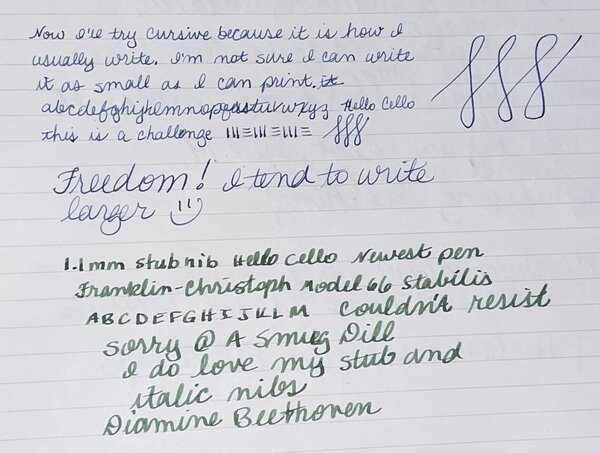 Now I'll try cursive because it is how I
usually write. I'm not sure I can write
it as small as I can print. it
abcdefghijklmnopqrstuvwxyz Hello Cello
this is a challenge
Freedom! I tend to write
larger
1.1mm stub nib Hello cello Newest pen
Franklin-Christoph Model 66 Stabilis
ABCDEFGHIJKLM Couldn't resist
sorry @ A Smug Dill
I do love my stub and
italic nibs
Diamine Beethoven